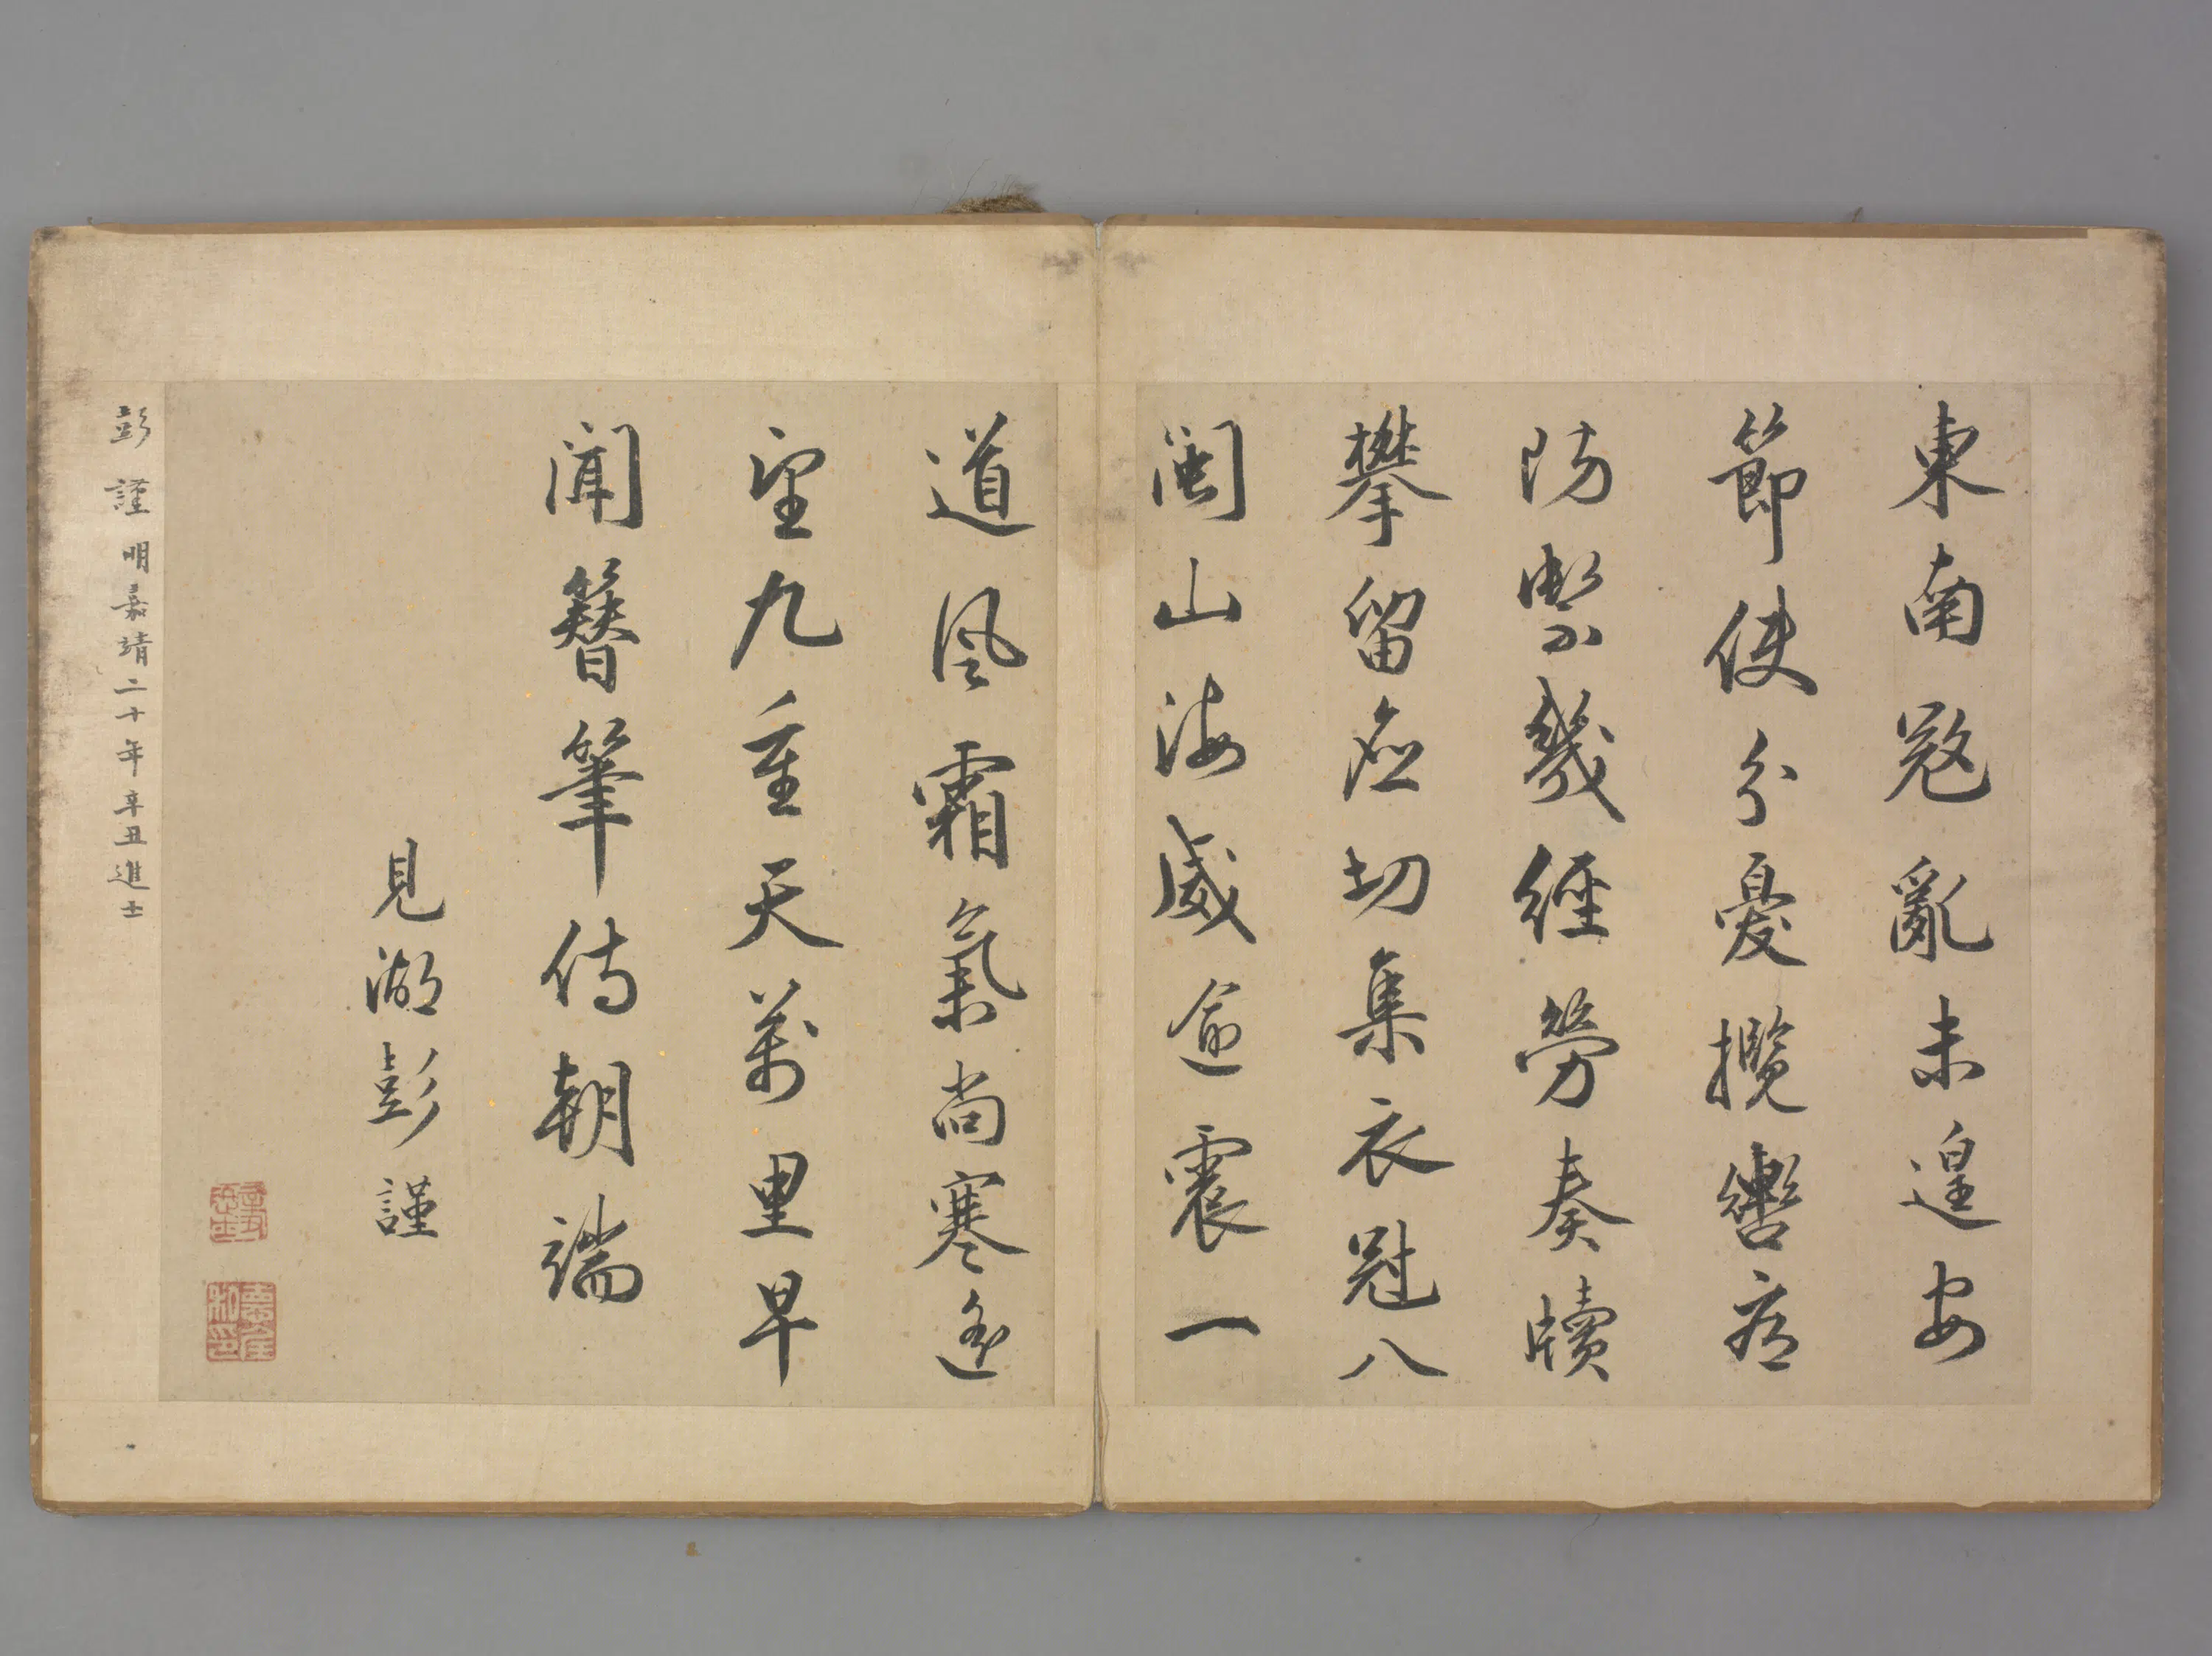 東南寇亂未遑安
節使分憂攬轡看
防禦幾經勞奏牘
攀留應切集衣冠八
閩山海威逾震一
道風霜氣尚寒遙
望九重天萬里早
聞簪筆侍朝端
見湖彭謹
彭謹明嘉靖二十年辛丑進士